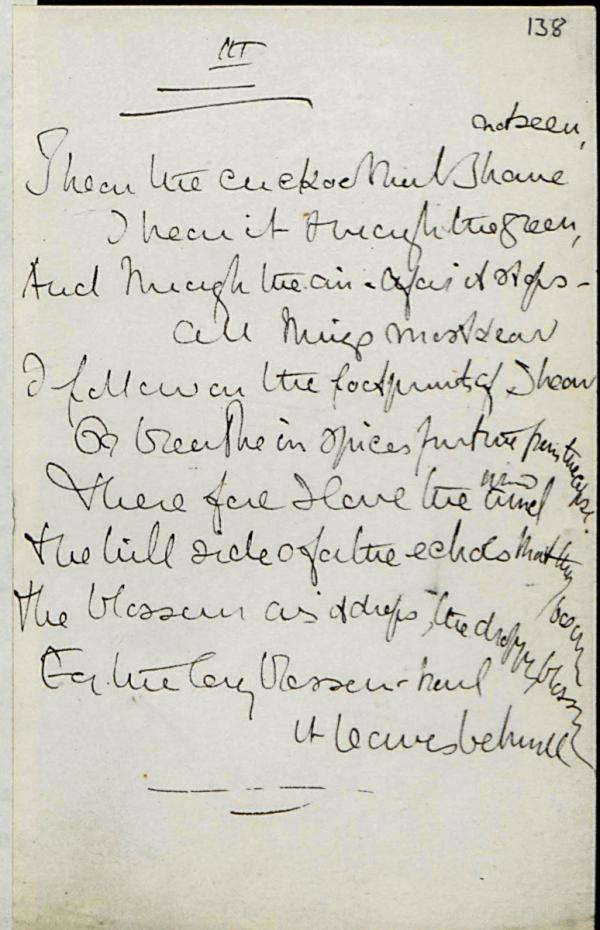 138
I hear the cuckoo that I have not seen,
I hear it through the green,
And through the air - again it stops -
All things most dear
I follow on the footprints of I hear
Or breathe in spices from the
Therefore I love the wind
The hill side for the echoes that they bear
The blossom as it drops, the dropping blossom
For the long blossom-trail
it leaves behind